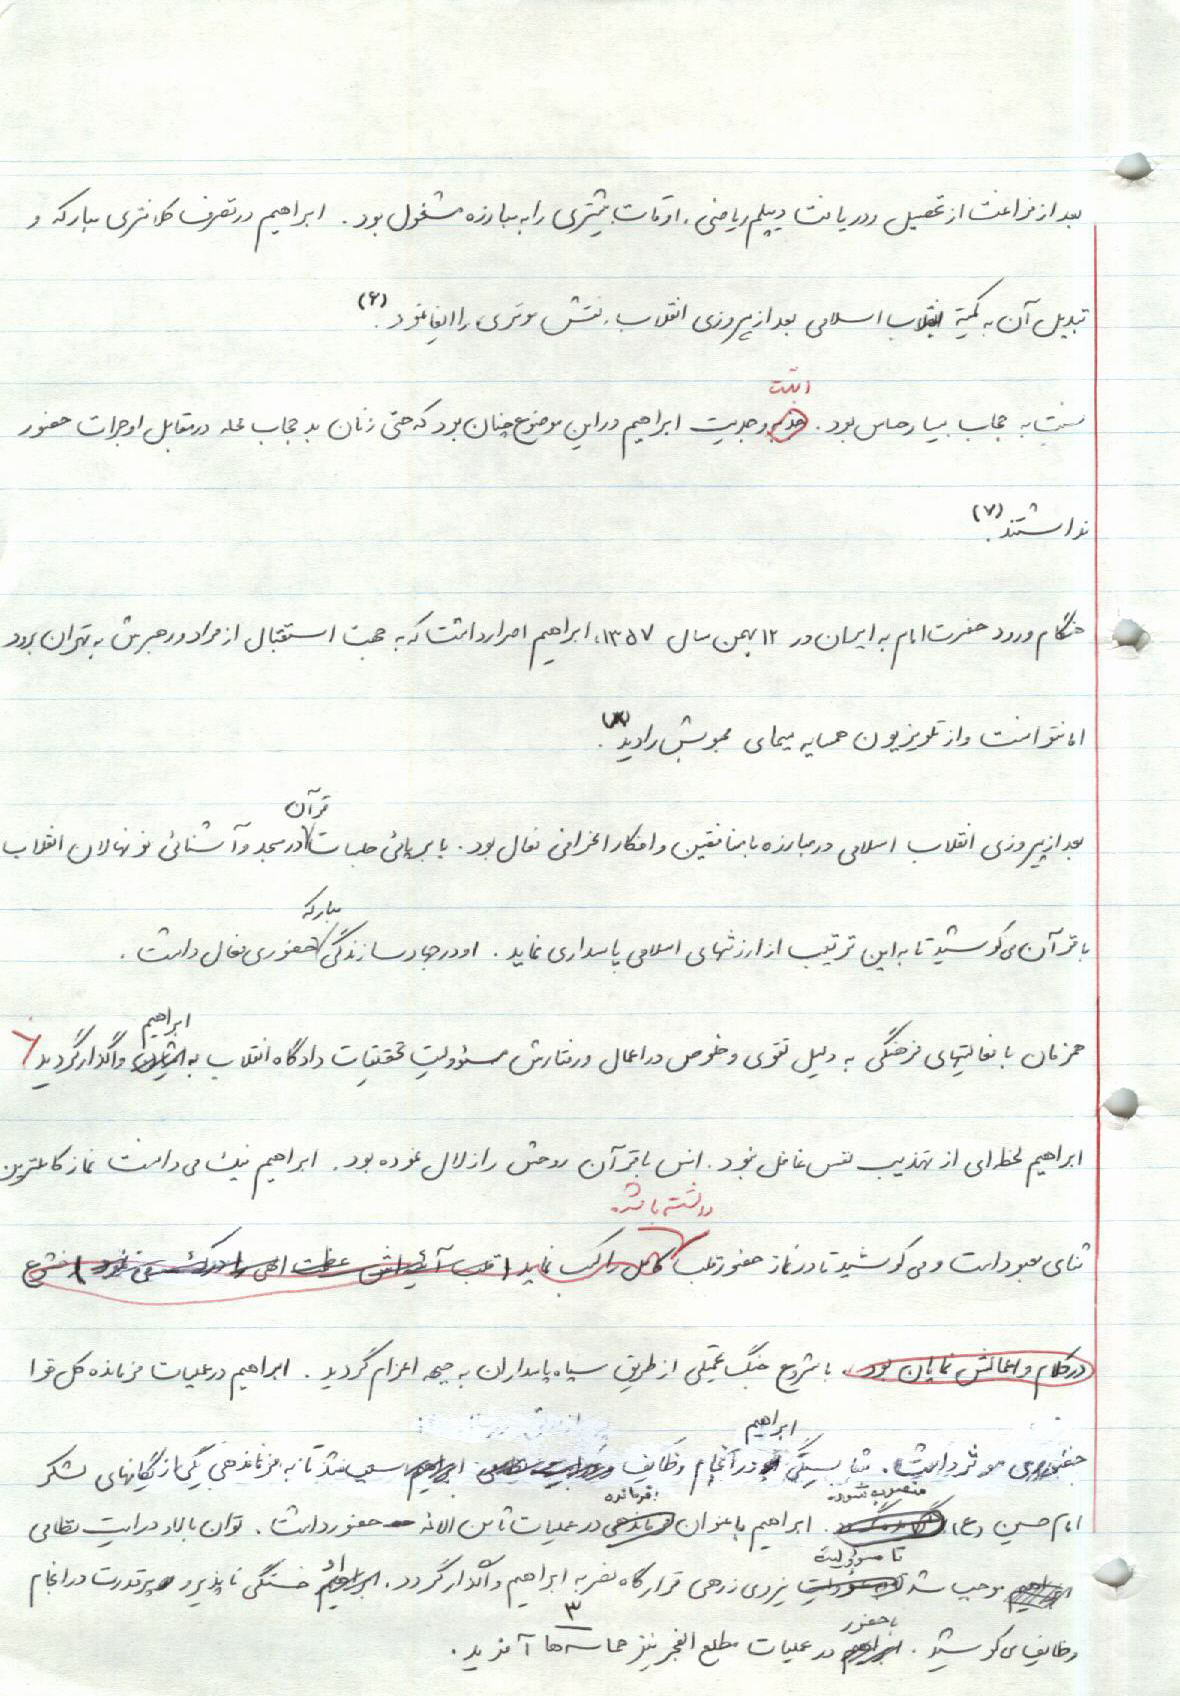 بعد از فراغت از تحصیل و دریافت دیپلم ریاضی، اوقات بیشتری را به مبارزه مشغول بود. ابراهیم در تصرف کلانتری مبارکه و
تبدیل آن به کمیته انقلاب اسلامی بعد از پیروزی انقلاب، نقش موثری را ایفا نمود. (۶)
ابهّت
نسبت به حجاب بسیار حساس بود. جذبه و جدیت ابراهیم در این موضوع چنان بود که حتی زنان بد حجاب محله در مقابل او جرات حضور
نداشتند. (۷)
هنگام ورود حضرت امام به ایران در ۱۲ بهمن سال ۱۳۵۷، ابراهیم اصرار داشت که به جهت استقبال از مراد و رهبرش به تهران برود
اما نتوانست و از تلویزیون همسایه سیمای محبوبش را دید. (۸)
قرآن
بعد از پیروزی انقلاب اسلامی در مبارزه با منافقین و افکار انحرافی فعال بود. با برپائی جلسات در مسجد و آشنائی نونهالان انقلاب
مبارکه
با قرآن می کوشید تا به این ترتیب از ارزشهای اسلامی پاسداری نماید. او در جهاد سازندگی حضوری فعال داشت.
ابراهیم
همزمان با فعالیتهای فرهنگی به دلیل تقوی و خلوص در اعمال و رفتارش مسئولیت تحقیقات دادگاه انقلاب به ایشان واگذار گردید
ابراهیم لحظه ای از تهذیب نفس غافل نبود. انس با قرآن روحش را زلال نموده بود. ابراهیم نیک می دانست نماز کاملترین
داشته باشد
ثنای معبود است و می کوشید تا در نماز حضور قلب کامل را کسب نماید (قلب آئینه اش عظمت الهی را درک می نمود) خشوع
در کلام و اعمالش نمایان بود. با شروع جنگ تحمیلی از طریق سپاه پاسداران به جبهه اعزام گردید. ابراهیم در عملیات فرمانده کل قوا
ابراهیم
حضوری موثر داشت. شایستگی در انجام وظایف ابراهیم سبب شد تا به فرماندهی یکی از گردانهای لشکر
منصوب شود. فرمانده
امام حسین (ع). ابراهیم با عنوان فرماندهی در عملیات ثامن الائمه حضور داشت. توان بالا و درایت نظامی
تا مسئولیت
ابراهیم موجب شد مسئولیت نیروی زرهی قرارگاه نصر به ابراهیم واگذار گردد. ابراهیم او خستگی ناپذیر و پر قدرت در انجام
با حضور ۳
وظایف می کوشید. ابراهیم در عملیات مطلع الفجر نیز حماسه ها آفرید.